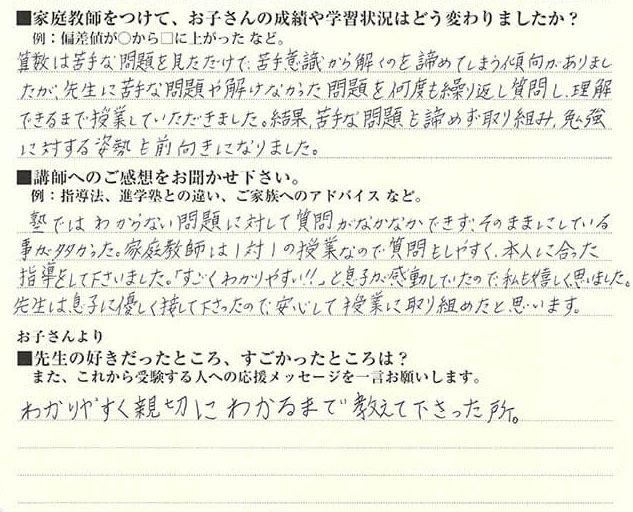 ■家庭教師をつけて、お子さんの成績や学習状況はどう変わりましたか？
例：偏差値が○から□に上がった など。
算数は苦手な問題を見ただけで、苦手意識から解くのを諦めてしまう傾向がありまし
たが、先生に苦手な問題や解けなかった問題を何度も繰り返し質問し、理解
できるまで授業していただきました。結果、苦手な問題も諦めず取り組み、勉強
に対する姿勢も前向きになりました。
■講師へのご感想をお聞かせ下さい。
例：指導法、進学塾との違い、ご家族へのアドバイス など。
塾では わからない問題に対して質問がなかなかできず、そのままにしている
事が多かった。家庭教師は1対1の授業なので質問もしやすく、本人に合った
指導をして下さいました。「すごくわかりやすい!!」と息子が感動していたので私も嬉しく思いました。
先生は息子に優しく接して下さったので、安心して授業に取り組めたと思います。
お子さんより
■先生の好きだったところ、すごかったところは？
また、これから受験する人への応援メッセージを一言お願いします。
わかりやすく親切に わかるまで 教えて下さった所。